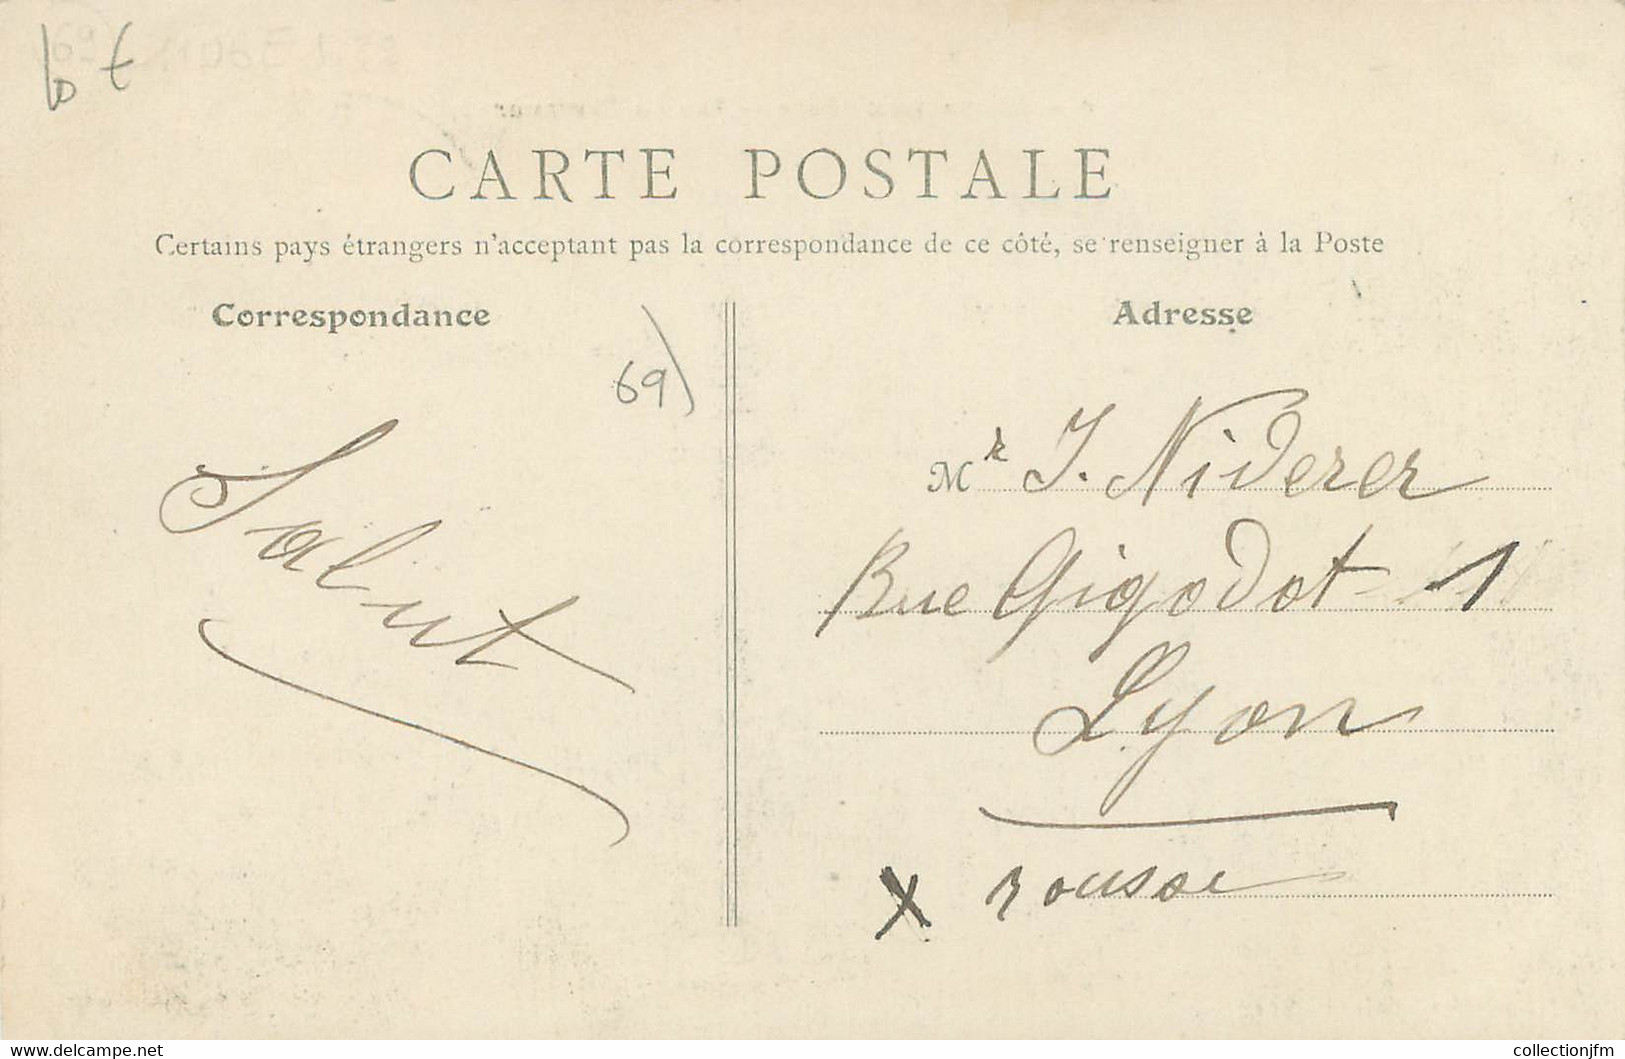 10 €
CARTE POSTALE
Certains pays étrangers n'acceptant pas la correspondance de ce côté, se renseigner à la Poste
Correspondance
69)
Salut
Adresse
Mr J. Niderer
Rue Gigodot 1
Lyon
X rousse
www.delcampe.net
collectionjfm